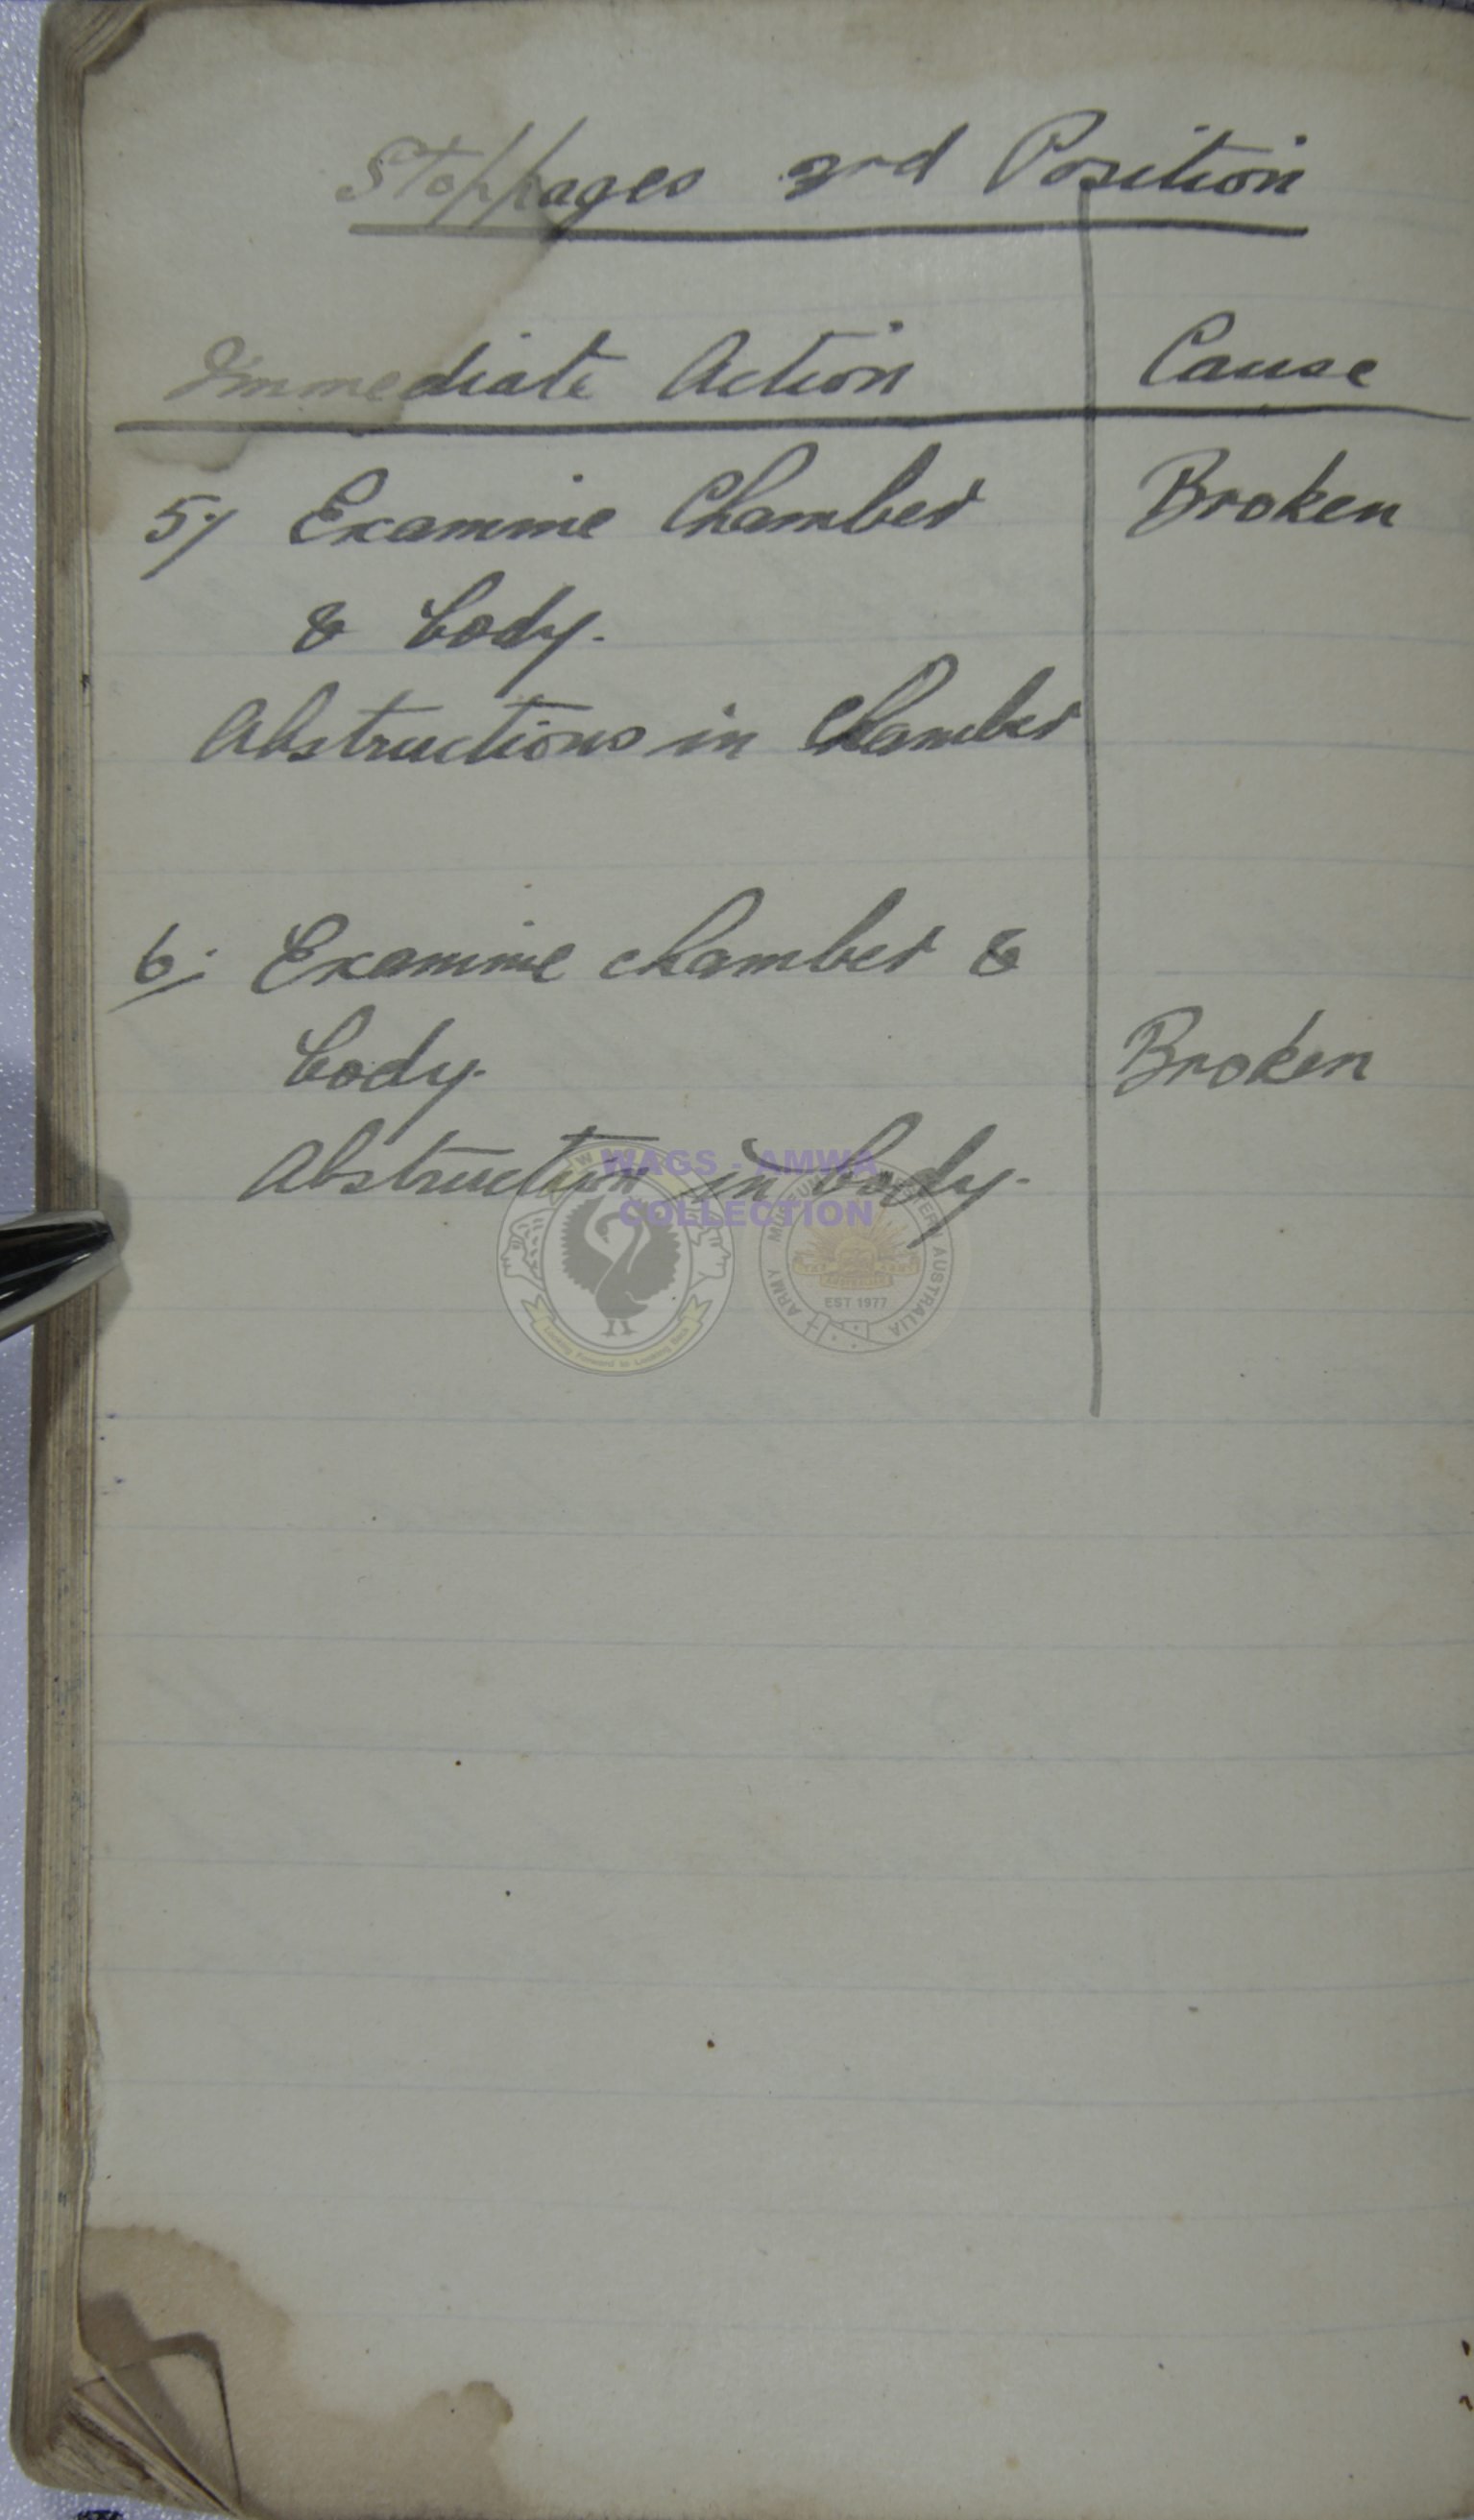 Stoppages 3rd Position
Immediate Action Cause
5/ Examine Chamber Broken
& body.
Abstructions in Chamber
6. Examine chamber &
body. Broken
Abstruction in body.
WAGS - AMWA
COLLECTION
ARMY MUSEUM WESTERN AUSTRALIA
EST 1977
Looking Forward to Looking Back